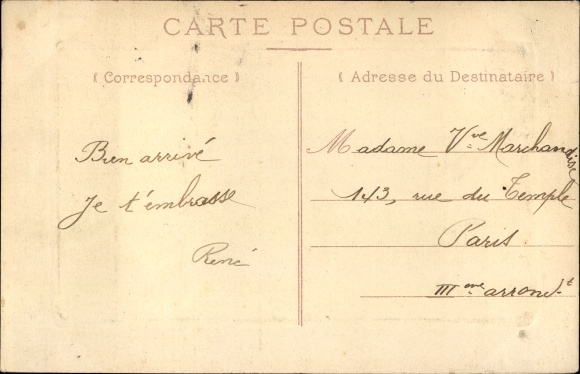 CARTE POSTALE
( Correspondance )
Bien arrivé
Je t'embrasse
René
( Adresse du Destinataire )
Madame Vve Marchandise
143, rue du Temple
Paris
IIIme arrondt